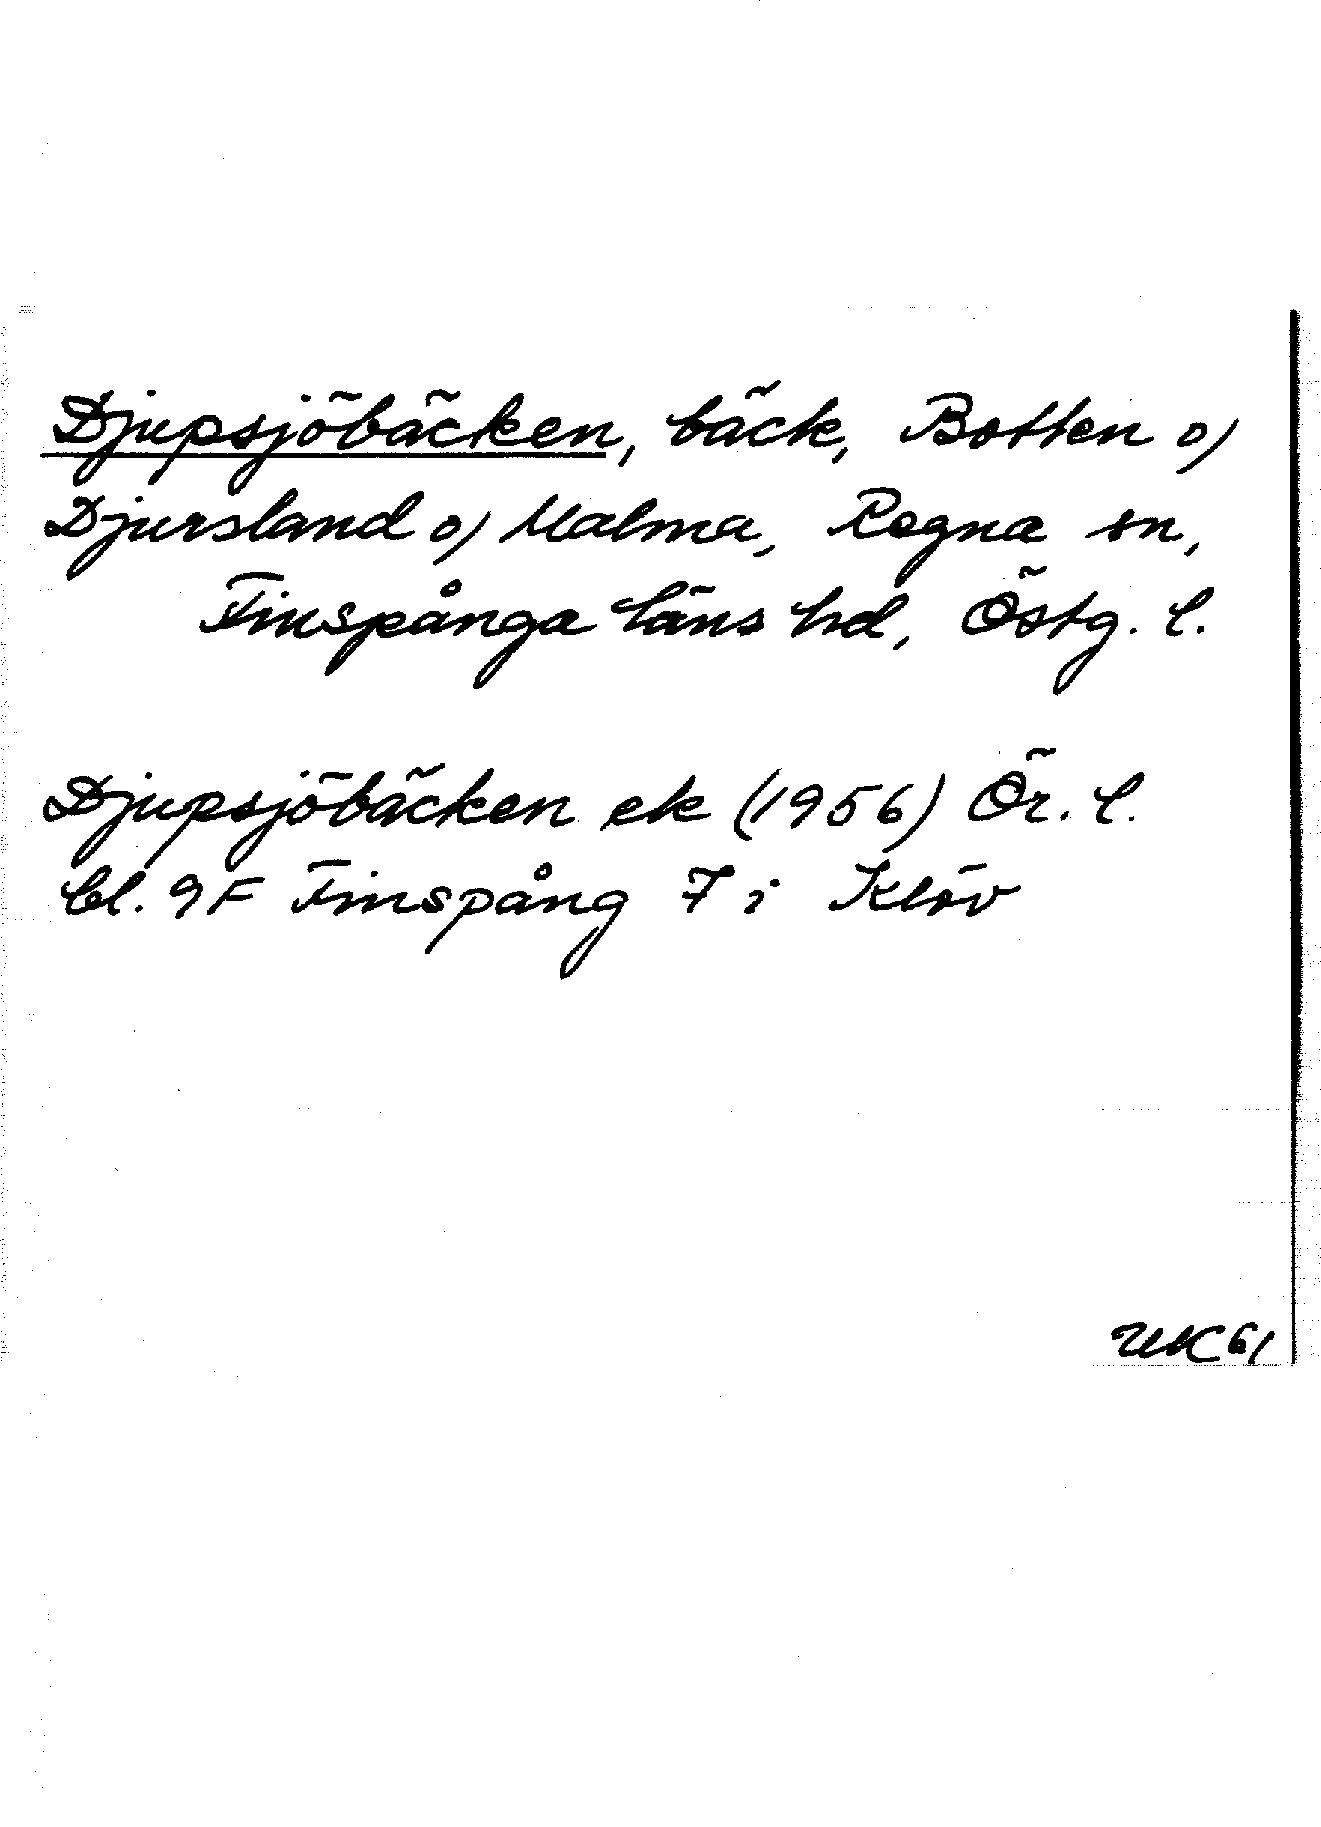 Djupsjöbäcken, bäck, Botten o)
Djursland o) Malma, Regna sn,
Finspånga läns hd, Östg. l.
Djupsjöbäcken ek (1956) Ör. l.
bl. 9F Finspång 7 i Klöv
61